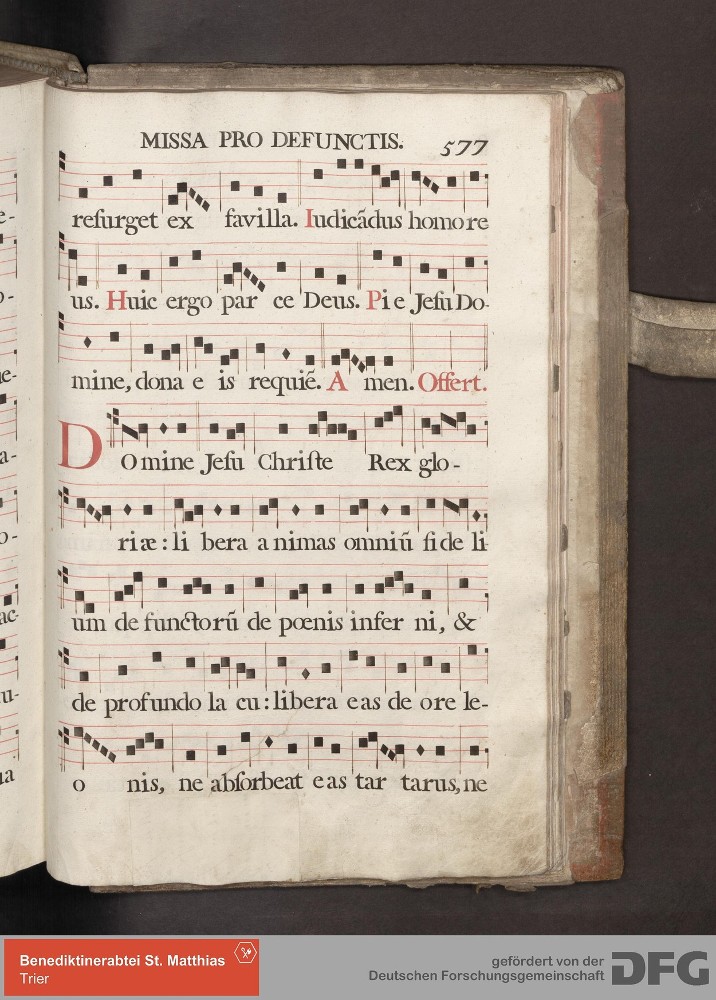 MISSA PRO DEFUNCTIS. 577
reſurget ex favilla. Iudicãdus homo re
us. Huic ergo par ce Deus. Pi e Jeſu Do-
mine, dona e is requiẽ. A men. Offert.
DOmine Jeſu Chriſte Rex glo-
riæ : li bera a nimas omniũ fi de li-
um de functorũ de pœnis infer ni, &
de profundo la cu : libera e as de ore le-
o nis, ne abſorbeat e as tar tarus, ne
Benediktinerabtei St. Matthias
Trier
gefördert von der
Deutschen Forschungsgemeinschaft DFG